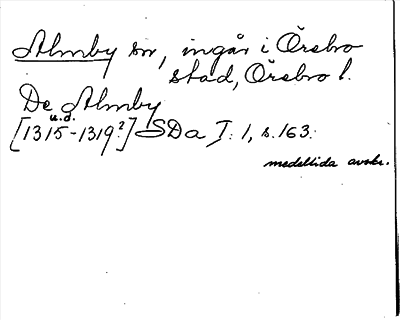 Almby sn, ingår i Örebro
stad, Örebro l.
De Almby
u.d.
[1315-1319?] SDa I:1, s.163.
medeltida avskr.